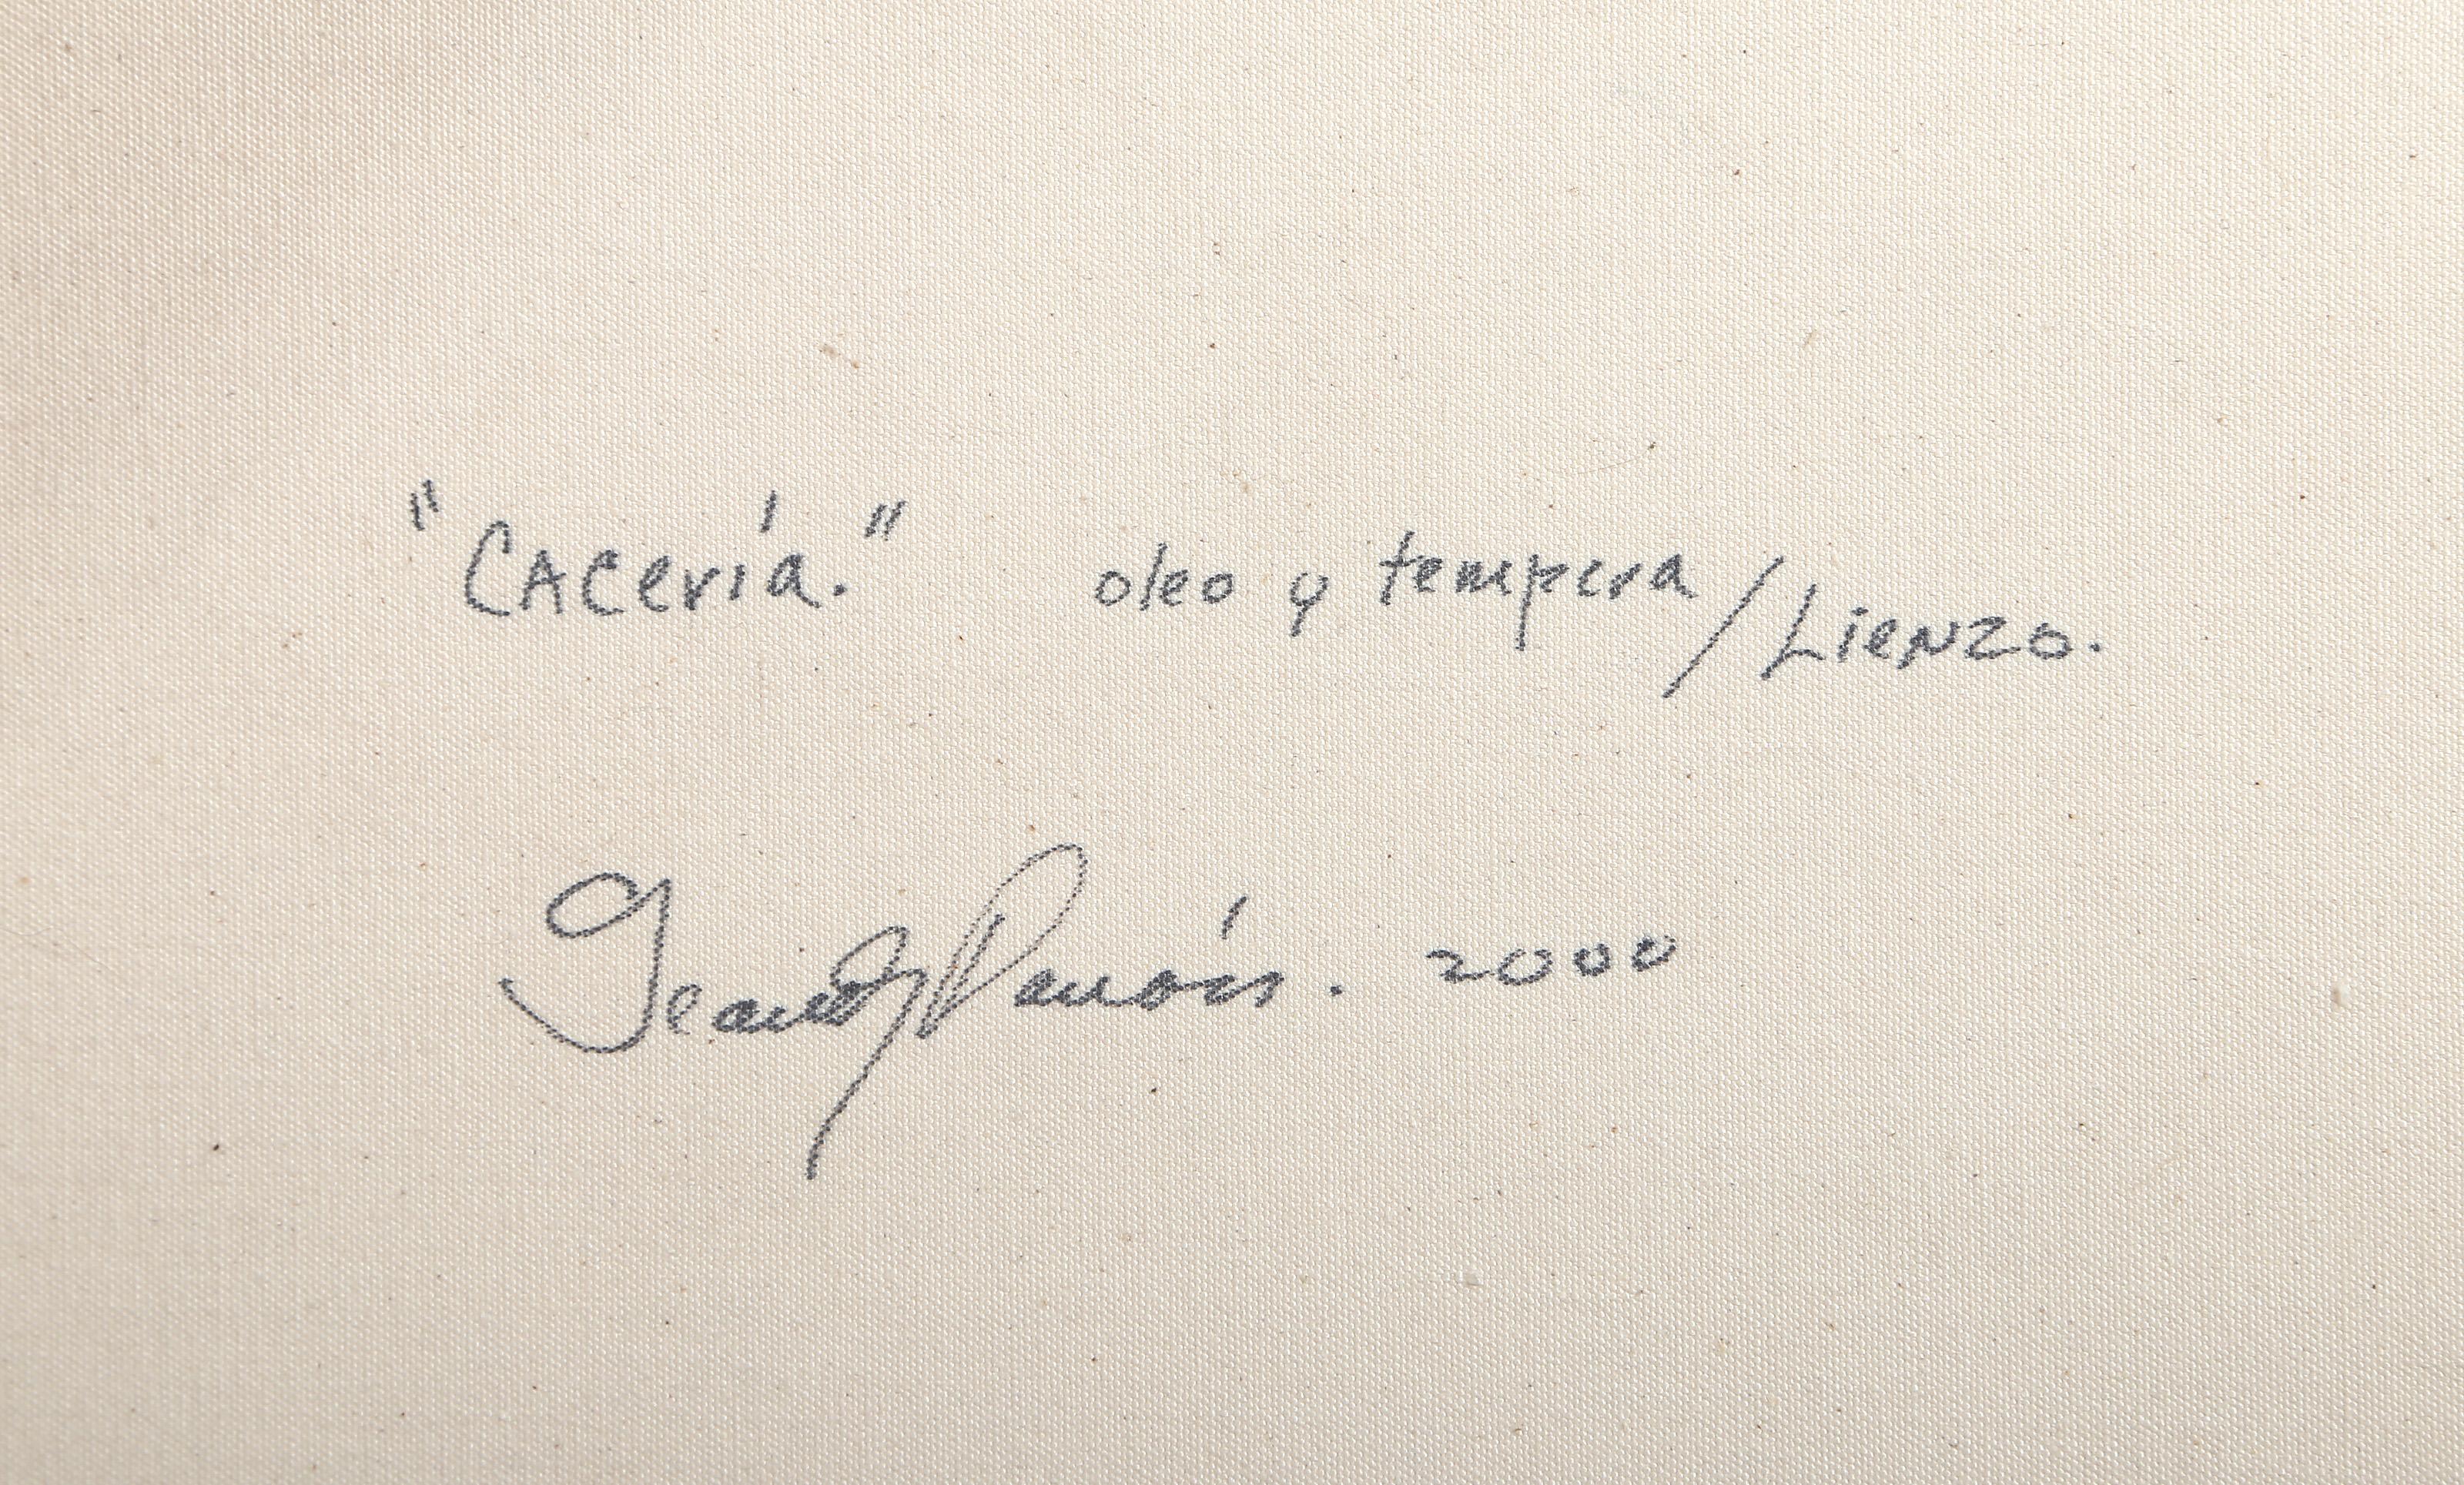 "Cacería." oleo y tempera/Lienzo.
2000